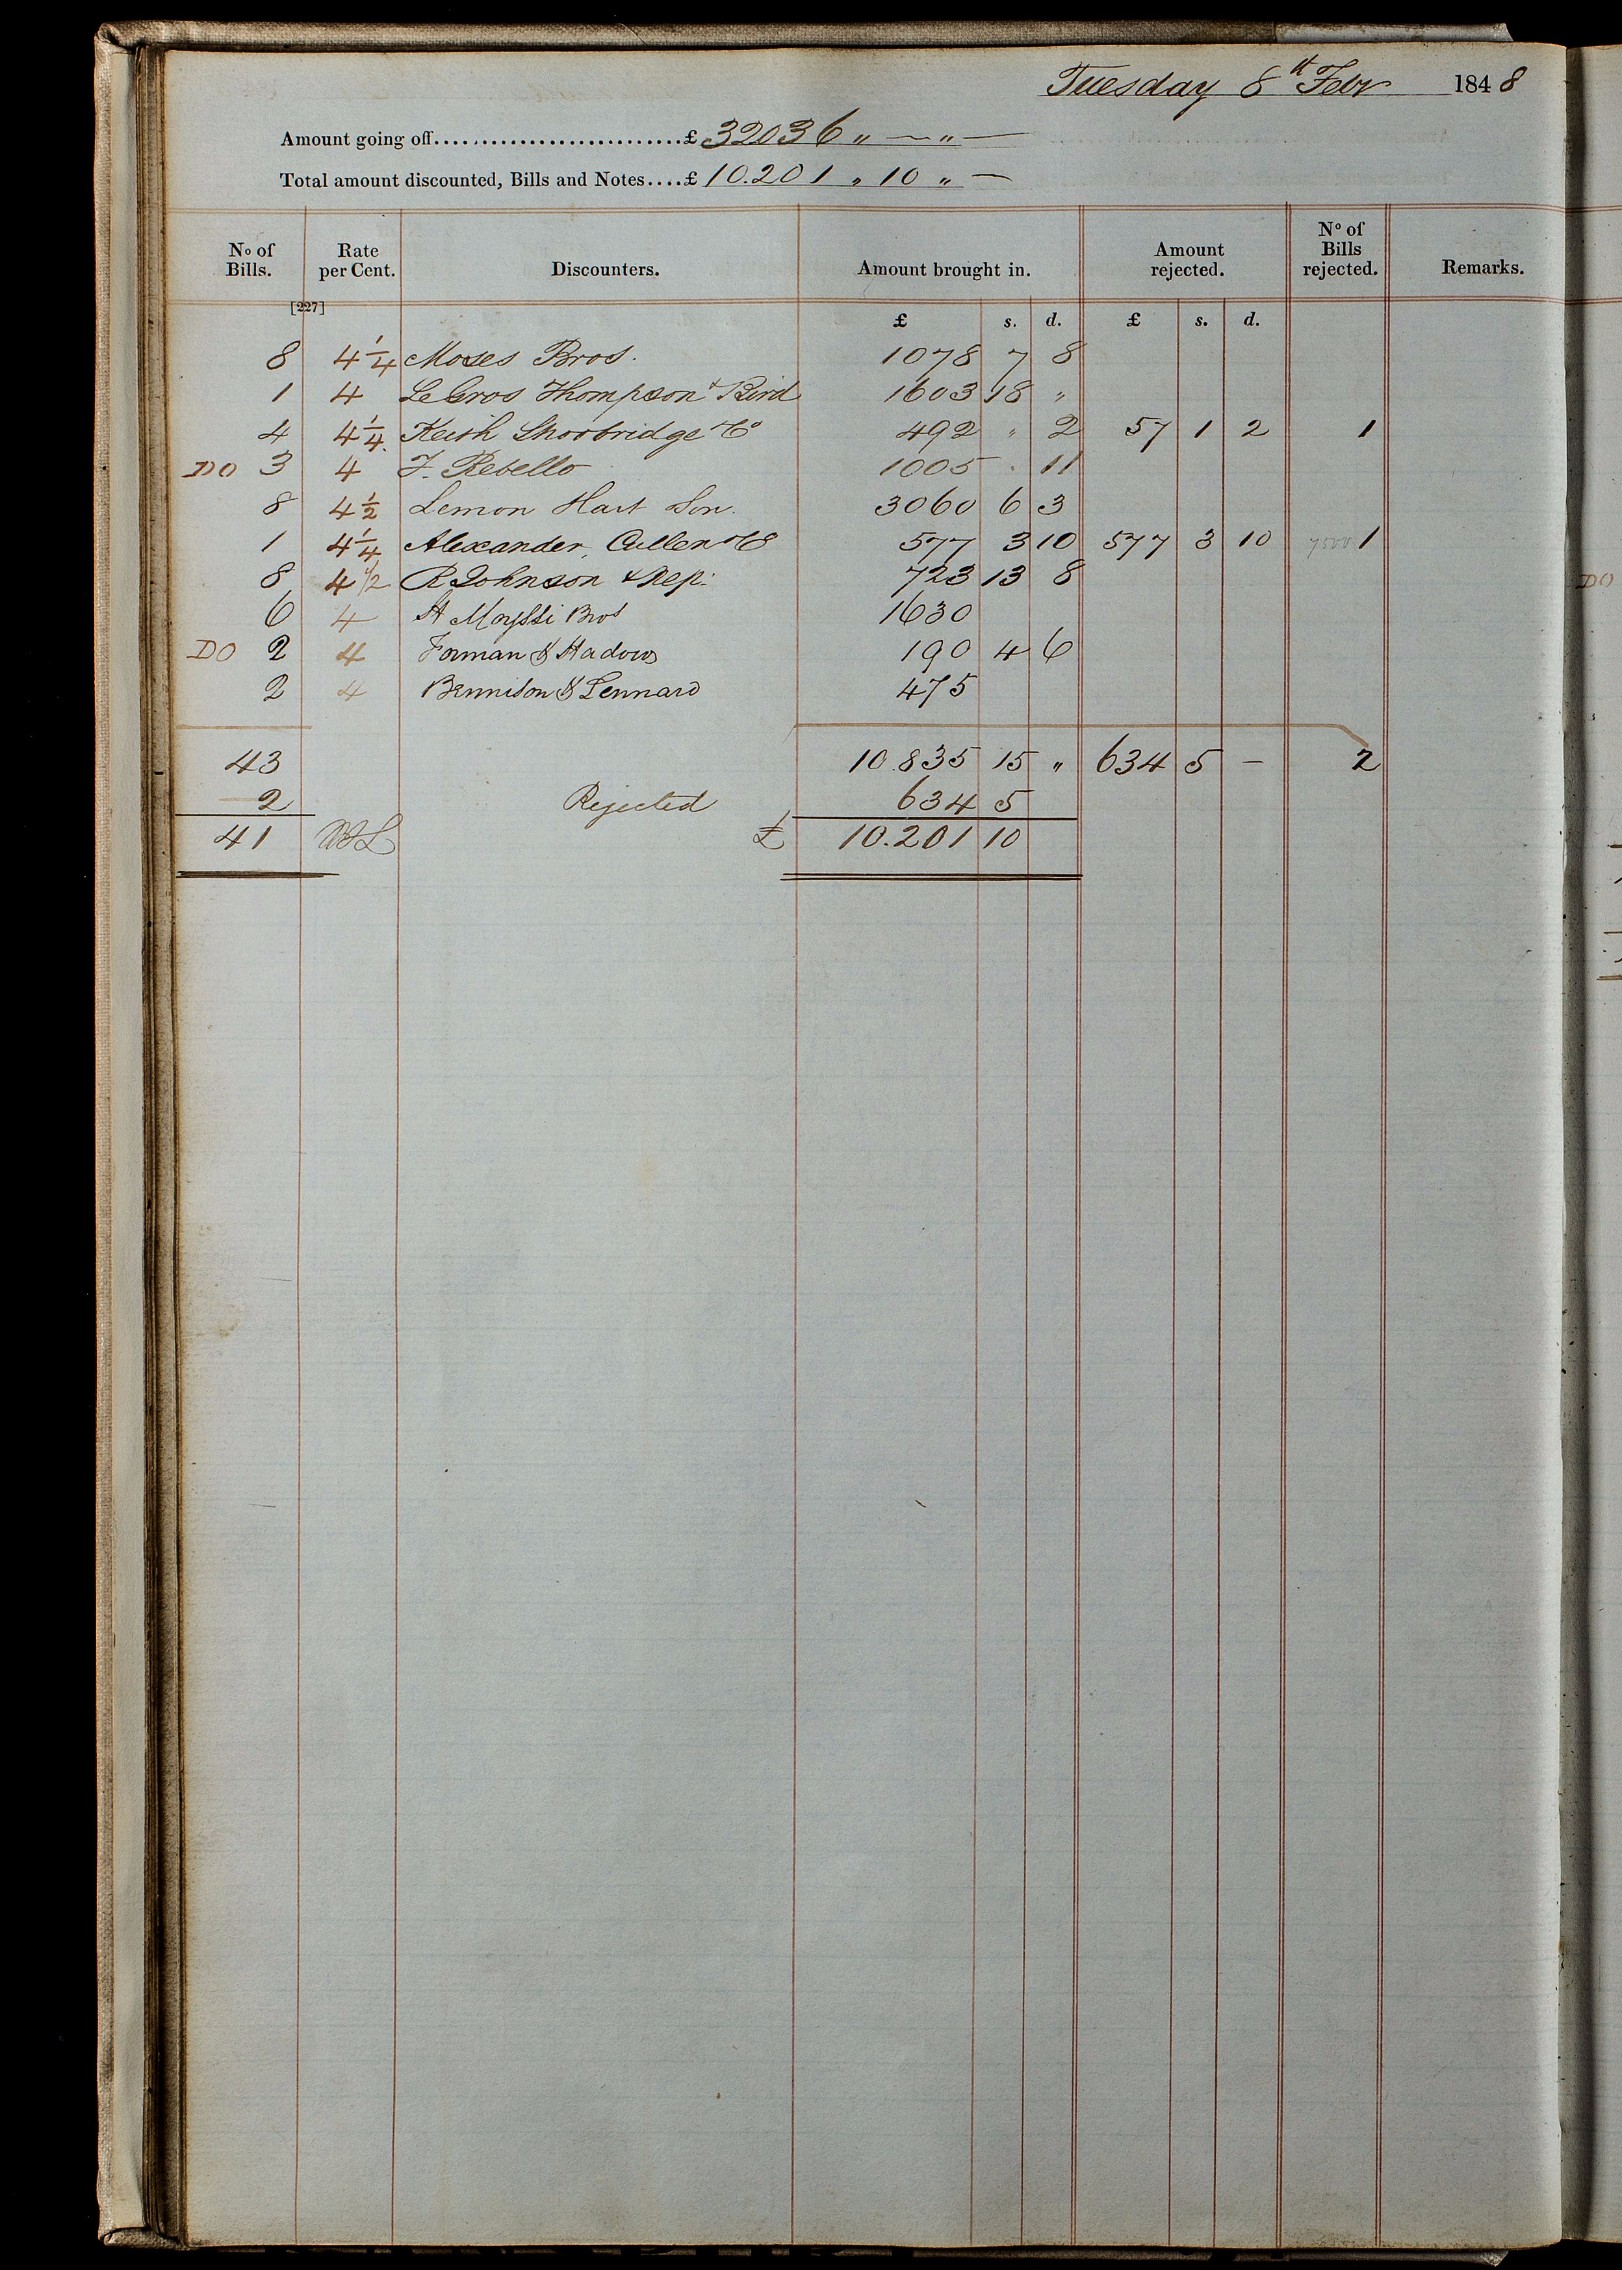 Tuesday 8th Febr 1848
Amount going off..........................£ 32036 „ — „ —
Total amount discounted, Bills and Notes....£ 10.201 „ 10 „ —
No of Bills. Rate per Cent. Discounters. Amount brought in. Amount rejected. No of Bills rejected. Remarks.
[227]
£ s. d. £ s. d.
8 4 1/4 Moses Bros. 1078 7 8
1 4 Le Gros Thompson & Bird 1603 18 „
4 4 1/4 Keith Shoobridge & Co 492 „ 2 57 1 2 1
DO 3 4 J. Rebello 1005 „ 11
8 4 1/2 Lemon Hart Son. 3060 6 3
1 4 1/4 Alexander, Cullen & Co 577 3 10 577 3 10 1
8 4 1/2 R Johnson & Nep: 723 13 8
6 4 Bros 1630
DO 2 4 Forman & Hadow 190 4 6
2 4 Bennison & Lennard 475
43 10.835 15 „ 634 5 — 2
2 Rejected 634 5
41 £ 10.201 10
DO